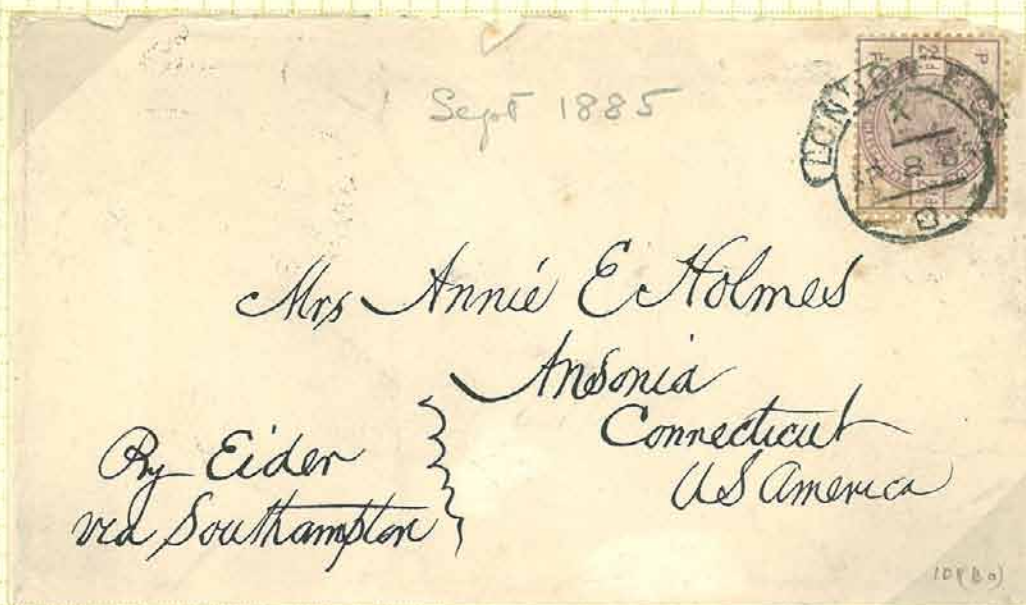 Sept 1885
LONDON E.C
Mrs Annie E Holmes
Ansonia
Connecticut
US America
By Eider
via Southampton